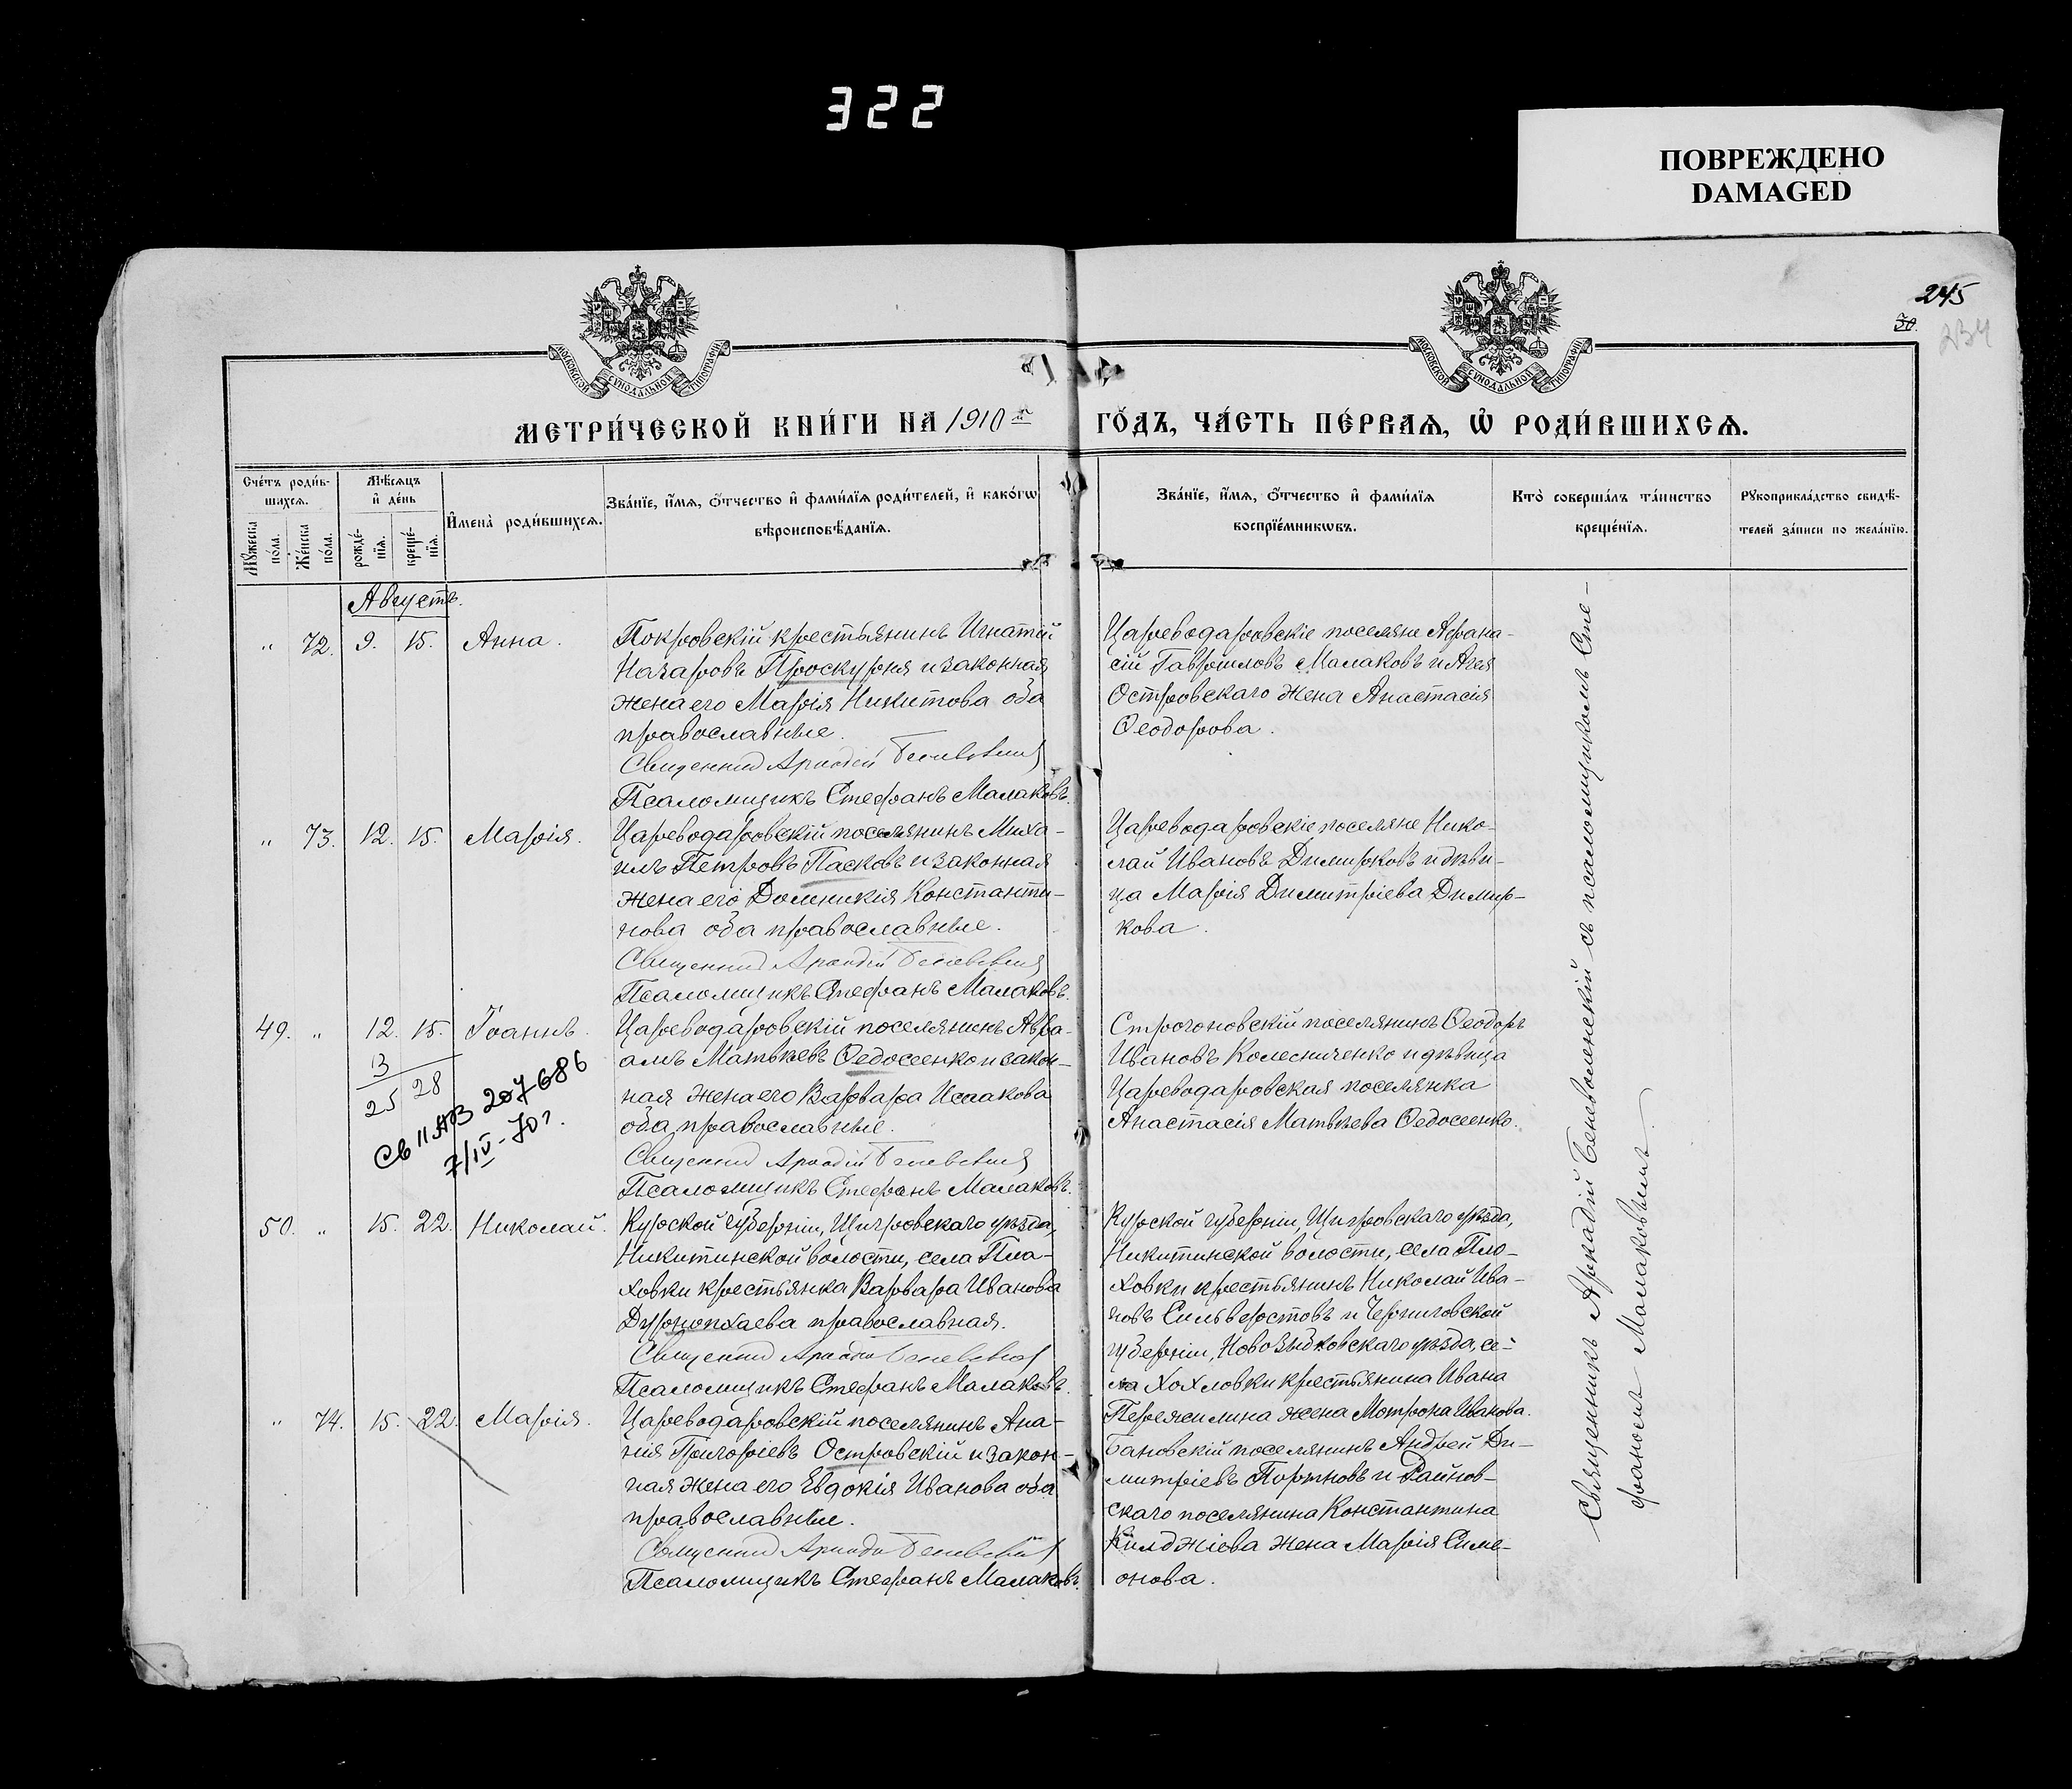 322
ПОВРЕЖДЕНО
DAMAGED
245
30.
234
МОСКОВСКОЙ СѴНОДАЛЬНОЙ ТИПОГРАФІИ
МОСКОВСКОЙ СѴНОДАЛЬНОЙ ТИПОГРАФІИ
МЕТРИ́ЧЕСКОЙ КНИ́ГИ НА 1910 й ГО́ДЪ, ЧА́СТЬ ПЕ́РВАѦ, Ѽ РОДИ́ВШИХСѦ.
Сче́тъ роди́в-
шихсѧ.
Мꙋ́жеска по́ла.
Же́нска по́ла.
Мѣ́сѧцъ
и҆ де́нь
рожде́-
нїѧ.
креще́-
нїѧ.
И҆мена̀ роди́вшихсѧ.
Зва́нїе, и҆́мѧ, ѻ҆́тчество и҆ фами́лїѧ роди́телей, и҆ како́гѡ
вѣроисповѣ́данїѧ.
Зва́нїе, и҆́мѧ, ѻ҆́тчество и҆ фами́лїѧ
воспрїе́мникѡвъ.
Кто̀ соверша́лъ та́инство
креще́нїѧ.
Рꙋкоприкла́дство свидѣ́-
телей за́писи по жела́нїю.
Августъ.
" 72. 9. 15. Анна.
Покровскій крестьянинъ Игнатій
Назаровъ Проскурня и законная
жена его Марія Никитова оба
православные.
Священникъ Аркадій Беневоленскій
Псаломщикъ Стефанъ Малаковъ.
Цареводаровскіе поселяне Афана-
сій Гавриловъ Малаковъ и
Островскаго жена Анастасія
Ѳеодорова.
" 73. 12. 15. Марія.
Цареводаровскій поселянинъ Миха-
илъ Петровъ Пасковъ и законная
жена его Домникія Константи-
нова оба православные.
Священникъ Аркадій Беневоленскій
Псаломщикъ Стефанъ Малаковъ.
Цареводаровскіе поселяне Нико-
лай Ивановъ Димирковъ и дѣви-
ца Марія Димитріева Димир-
кова.
49. " 12. 15. Іоаннъ.
13
25 28
Св II АЗ 207686
7/IV-70г.
Цареводаровскій поселянинъ Авра-
амъ Матвѣевъ Ѳедосеенко и закон-
ная жена его Варвара Исаакова
оба православные.
Священникъ Аркадій Беневоленскій
Псаломщикъ Стефанъ Малаковъ.
Строгоновскій поселянинъ Ѳеодоръ
Ивановъ Колесниченко и дѣвица
Цареводаровская поселянка
Анастасія Матвѣева Ѳедосеенко.
50. " 15. 22. Николай.
Курской губерніи, Щигровскаго уѣзда,
Никитинской волости, села Пла-
ховки крестьянка Варвара Иванова
Дурнопхаева православная.
Священникъ Аркадій Беневоленскій
Псаломщикъ Стефанъ Малаковъ.
Курской губерніи, Щигровскаго уѣзда,
Никитинской волости, села Пло-
ховки крестьянинъ Николай Ива-
новъ Сильверстовъ и Черниговской
губерніи, Новозыбковскаго уѣзда, се-
ла Хохловки крестьянина Ивана
Пережилина жена Мотрона Иванова.
" 74. 15. 22. Марія.
Цареводаровскій поселянинъ Ана-
нія Григоріевъ Островскій и закон-
ная жена его Евдокія Иванова оба
православные.
Священникъ Аркадій Беневоленскій
Псаломщикъ Стефанъ Малаковъ.
Бановскій поселянинъ Андрей Ди-
митріевъ Портновъ и Райнов-
скаго поселянина Константина
Жена Марія Симе-
онова.
Священникъ Аркадій Беневоленскій съ псаломщикомъ Сте-
фаномъ Малаковымъ.